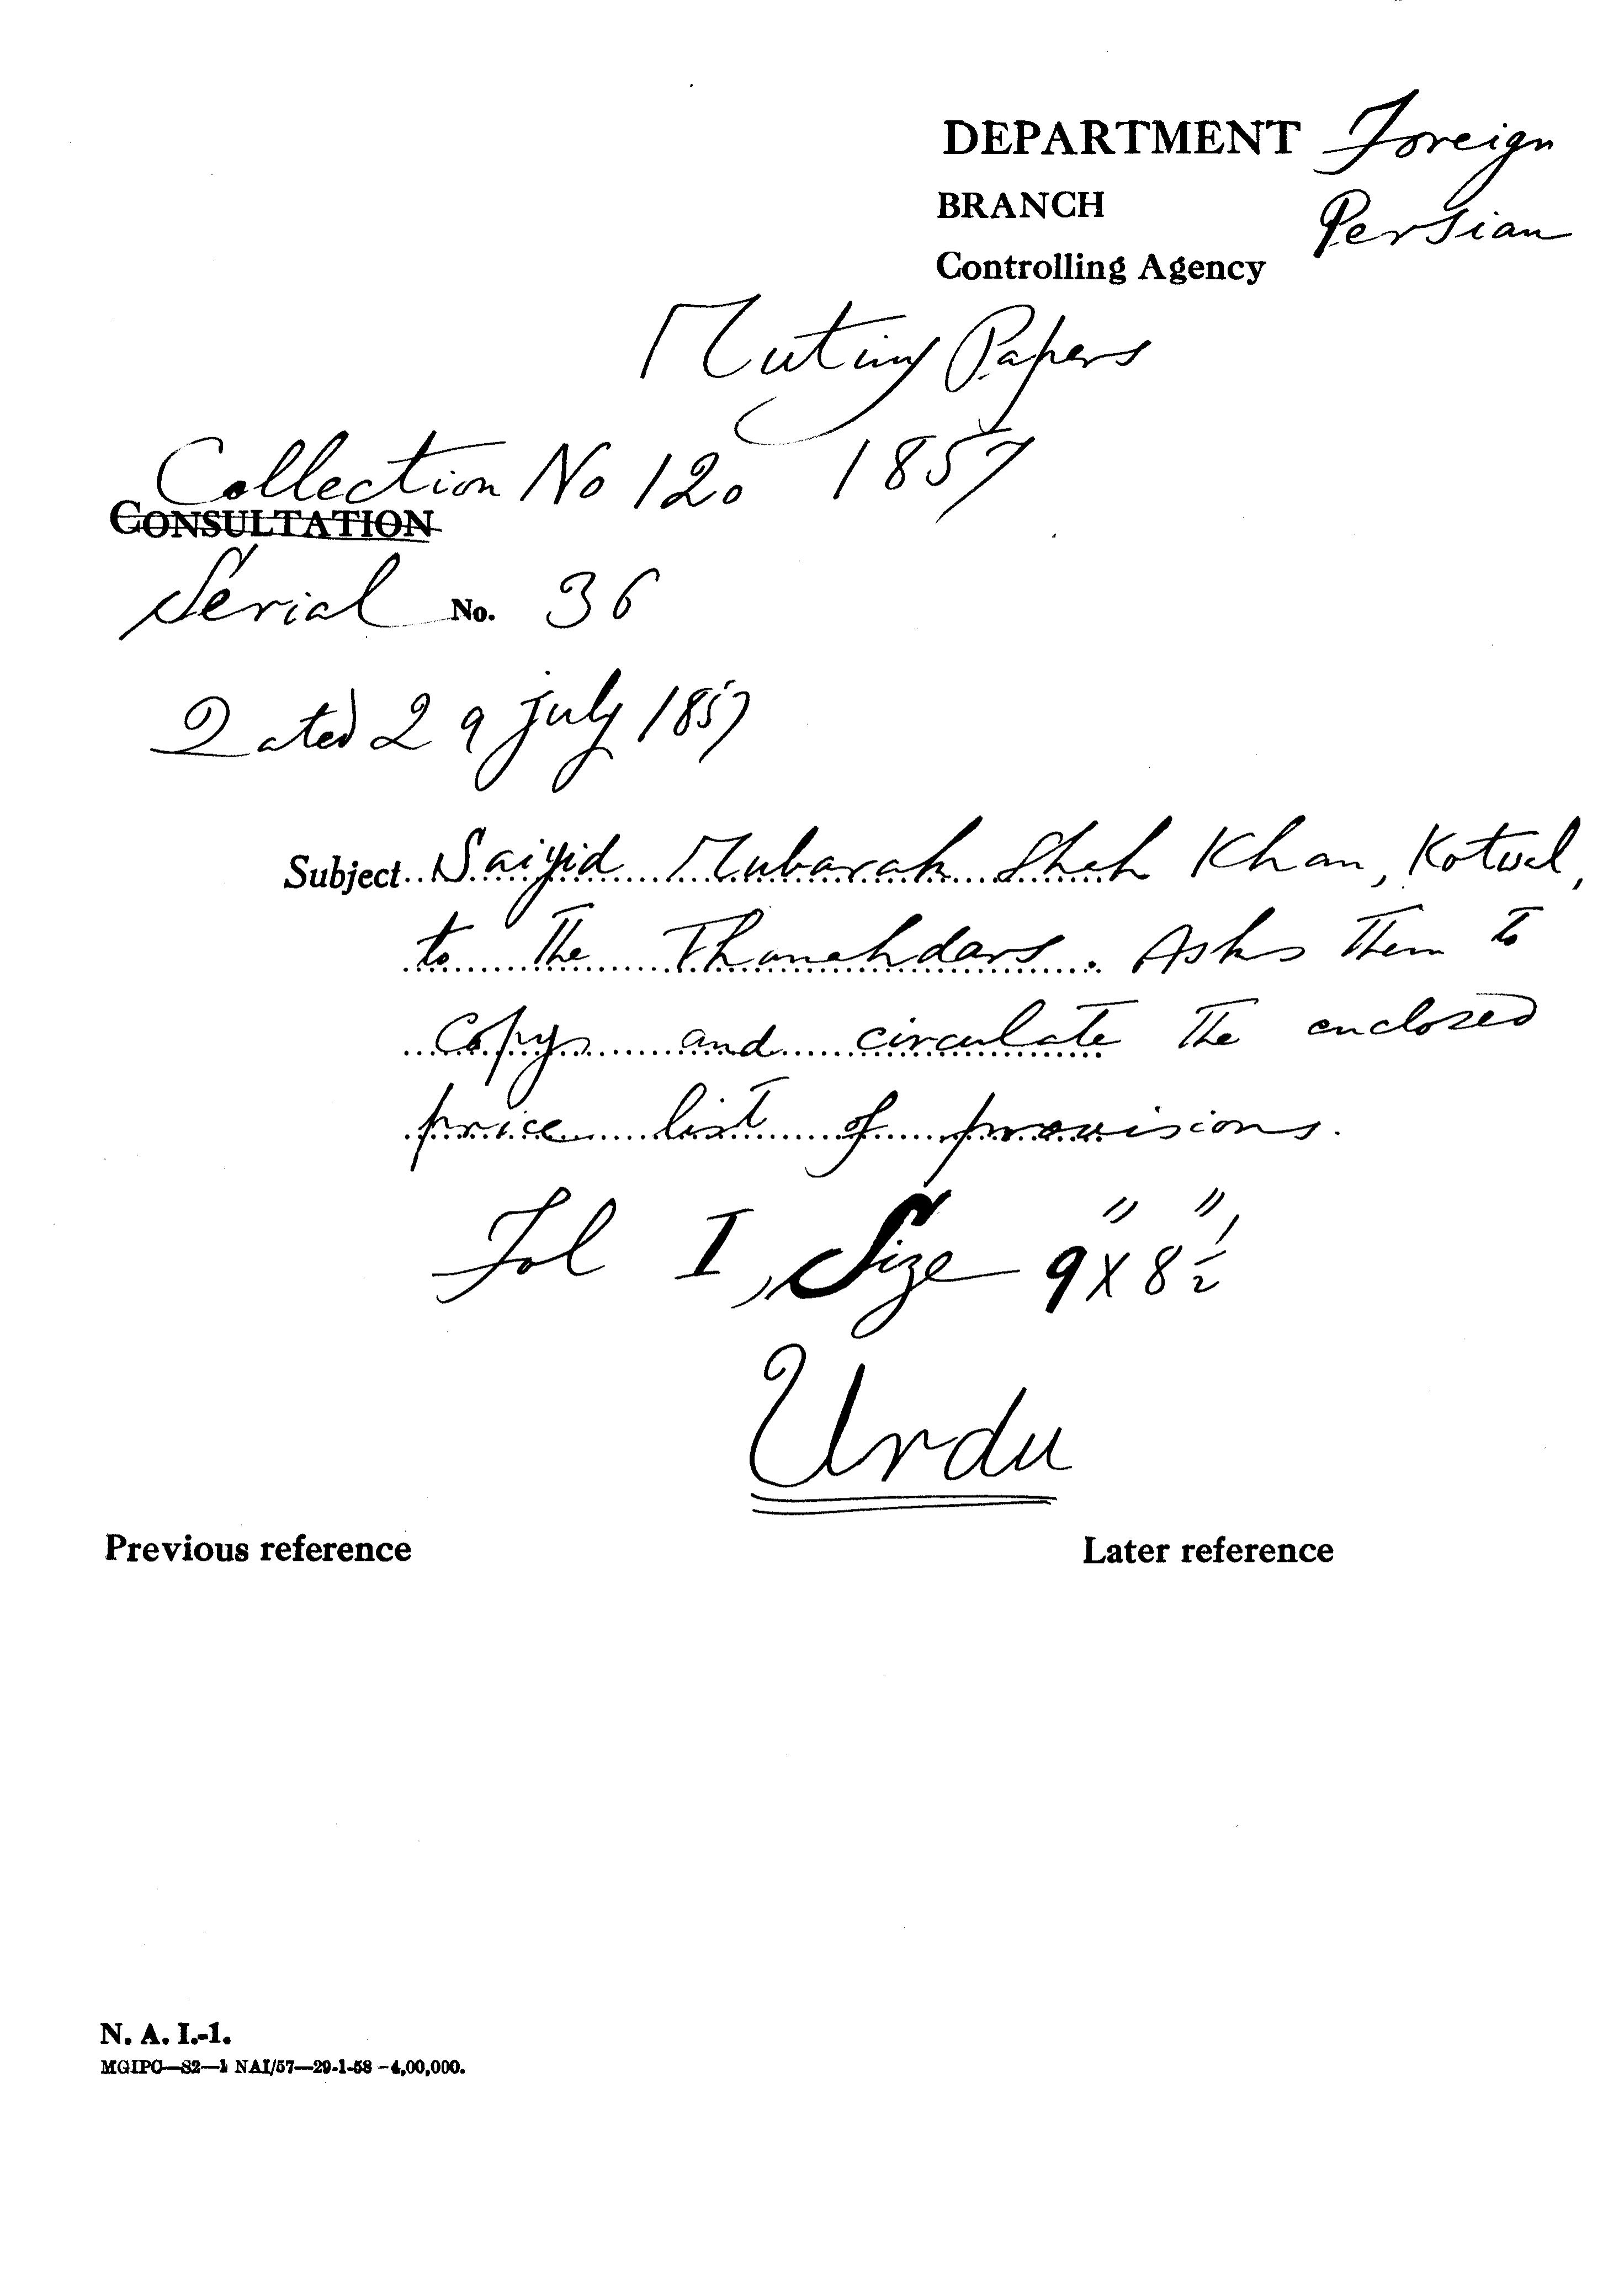 DEPARTMENT Foreign
BRANCH Persian
Controlling Agency
Mutiny Papers
Collection No 120 1857
CONSULTATION
Serial No. 36
Dated 29 july 1857
Subject Saiyid Mubarak Shah Khan, Kotwal,
to the Thanahdars. Asks them to
copy and circulate the enclosed
price list of provisions.
Fol I, Size 9" X 8½"
Urdu
Previous reference Later reference
N. A. I.-1.
MGIPC—S2—1 NAI/57—29-1-58—4,00,000.